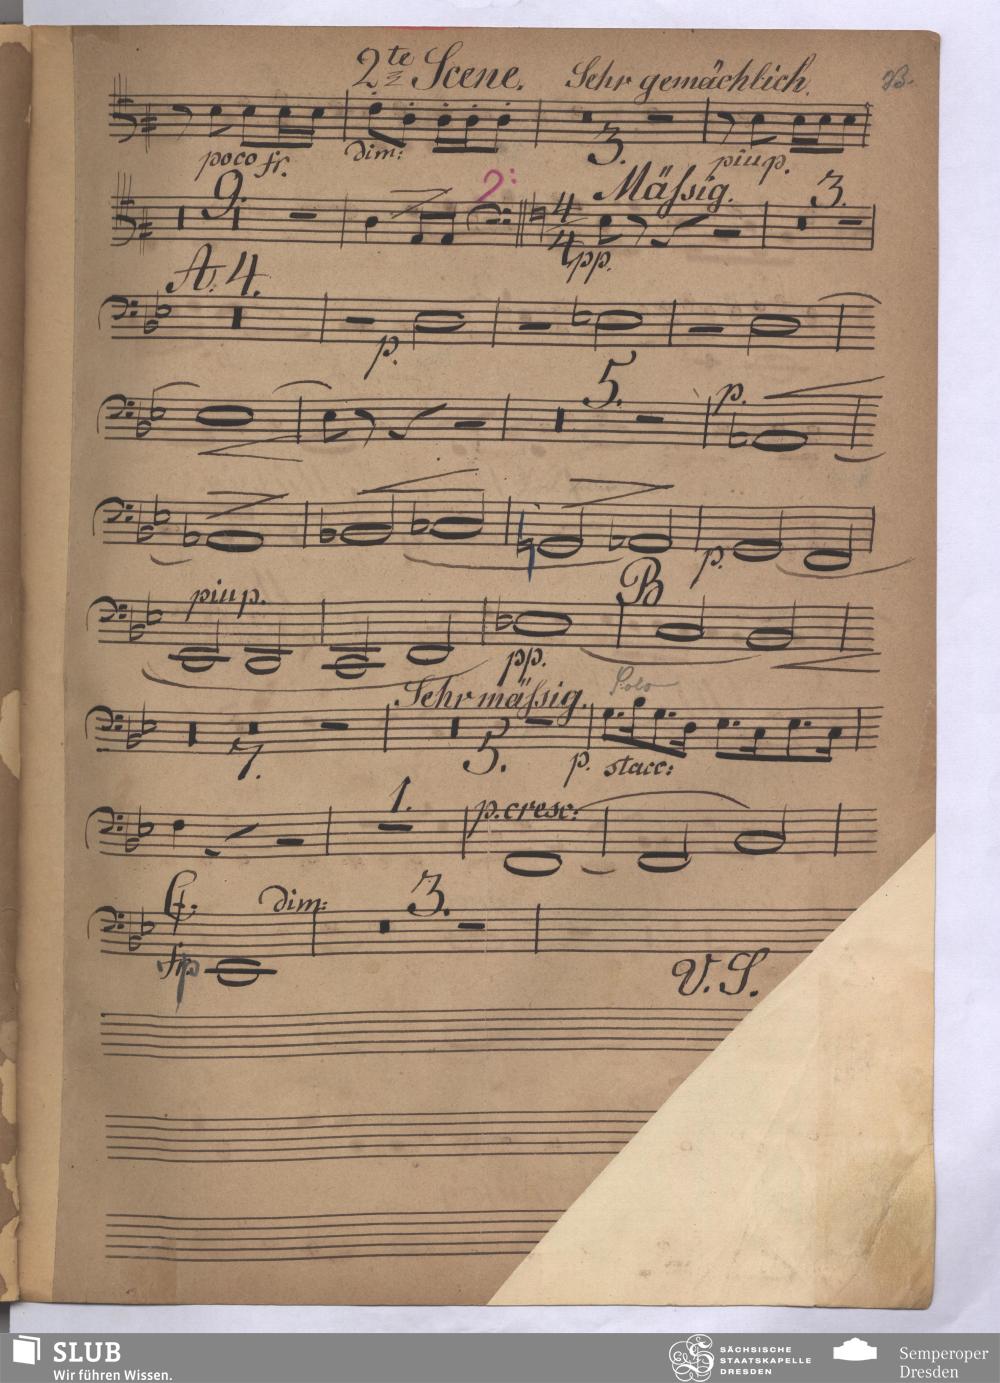 2te Scene. Sehr gemächlich.
poco fr. dim: 3. piu p.
9. 2: Mäßig. 3.
4 4 pp.
A. 4.
p.
5. p.
p.
piu p. B
pp.
Sehr mäßig. Solo
7. 5. p. stacc:
1. p. cresc:
C. dim: 3.
fp
V. S.
SLUB
Wir führen Wissen.
SÄCHSISCHE
STAATSKAPELLE
DRESDEN
Semperoper
Dresden